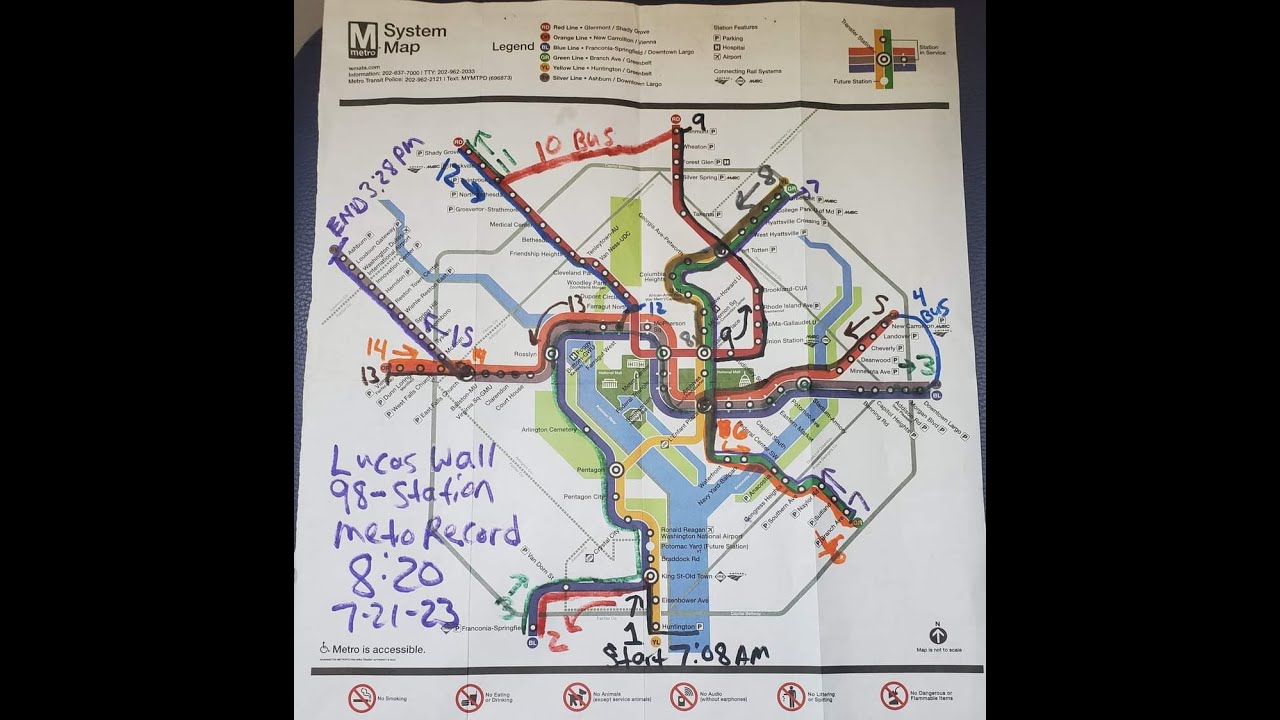 M
metro
System
Map
wmata.com
Information: 202-637-7000 | TTY: 202-962-2033
Metro Transit Police: 202-962-2121 | Text: MYMTPD (696873)
Legend
RD Red Line • Glenmont / Shady Grove
OR Orange Line • New Carrollton / Vienna
BL Blue Line • Franconia-Springfield / Downtown Largo
GR Green Line • Branch Ave / Greenbelt
YL Yellow Line • Huntington / Greenbelt
SV Silver Line • Ashburn / Downtown Largo
Station Features
P Parking
H Hospital
Airport
Connecting Rail Systems
Transfer Station
Station
in Service
Future Station
RD
9
RD
11
10 BUS
Shady Grove
12
Wheaton P
Forest Glen P H
Silver Spring P
Takoma P
END 3:28 PM
Grosvenor-Strathmore
Medical Center
Bethesda
Friendship Heights
Tenleytown-AU
Van Ness-UDC
Cleveland Park
Woodley Park
Dupont Circle
Farragut North
Georgia Ave-Petworth
Columbia
Heights
8
GR
7
College Park-U of Md P
Hyattsville Crossing P
West Hyattsville P
Fort Totten P
Brookland-CUA
Rhode Island Ave P
NoMa-Gallaudet U
Union Station
Ashburn P
Herndon P
15
14
14
13
13
12
8
9
5
4
BUS
New Carrollton
Landover P
Cheverly P
Deanwood P
Minnesota Ave P
3
BL
Downtown Largo P
Morgan Blvd P
Capitol Heights P
Benning Rd
Rosslyn
Clarendon
Court House
National Mall
National Mall
Farragut West
Arlington Cemetery
Pentagon
Pentagon City
Crystal City
Stadium-Armory
Potomac Ave
Eastern Market
Capitol South
Federal Center SW
L'Enfant Plaza
6
Waterfront
Navy Yard-Ballpark
Anacostia
Congress Heights
Southern Ave
Branch Ave
7
6
Ronald Reagan
Washington National Airport
Potomac Yard (Future Station)
Braddock Rd
King St-Old Town
Eisenhower Ave
Huntington P
YL
P Van Dorn St
Franconia-Springfield
BL
3
2
1
Start 7:08 AM
Lucas Wall
98-Station
Metro Record
8:20
7-21-23
Metro is accessible.
N
Map is not to scale
No Smoking
No Eating
or Drinking
No Animals
(except service animals)
No Audio
(without earphones)
No Littering
or Spitting
No Dangerous or
Flammable Items